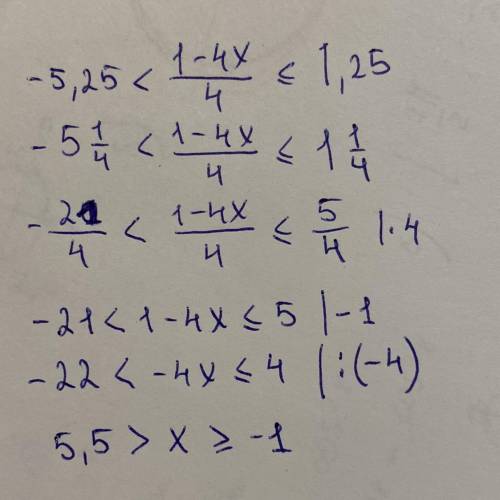 -5,25 < (1-4x)/4 ≤ 1,25
-5 1/4 < (1-4x)/4 ≤ 1 1/4
-21/4 < (1-4x)/4 ≤ 5/4 |·4
-21 < 1-4x ≤ 5 |-1
-22 < -4x ≤ 4 |:(-4)
5,5 > x ≥ -1